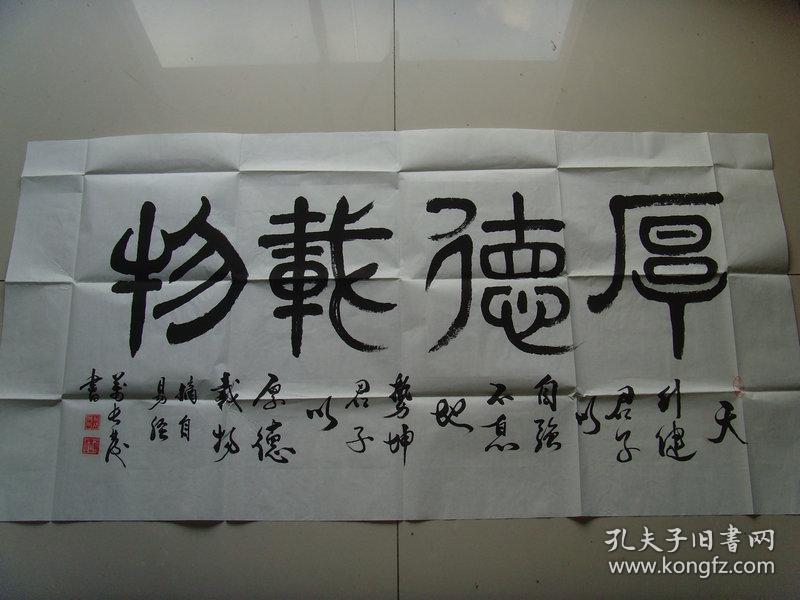 厚德載物
天
行健
君子
以
自強
不息
地
勢坤
君子
以
厚德
載物
摘自
易经
書
孔夫子旧书网
www.kongfz.com